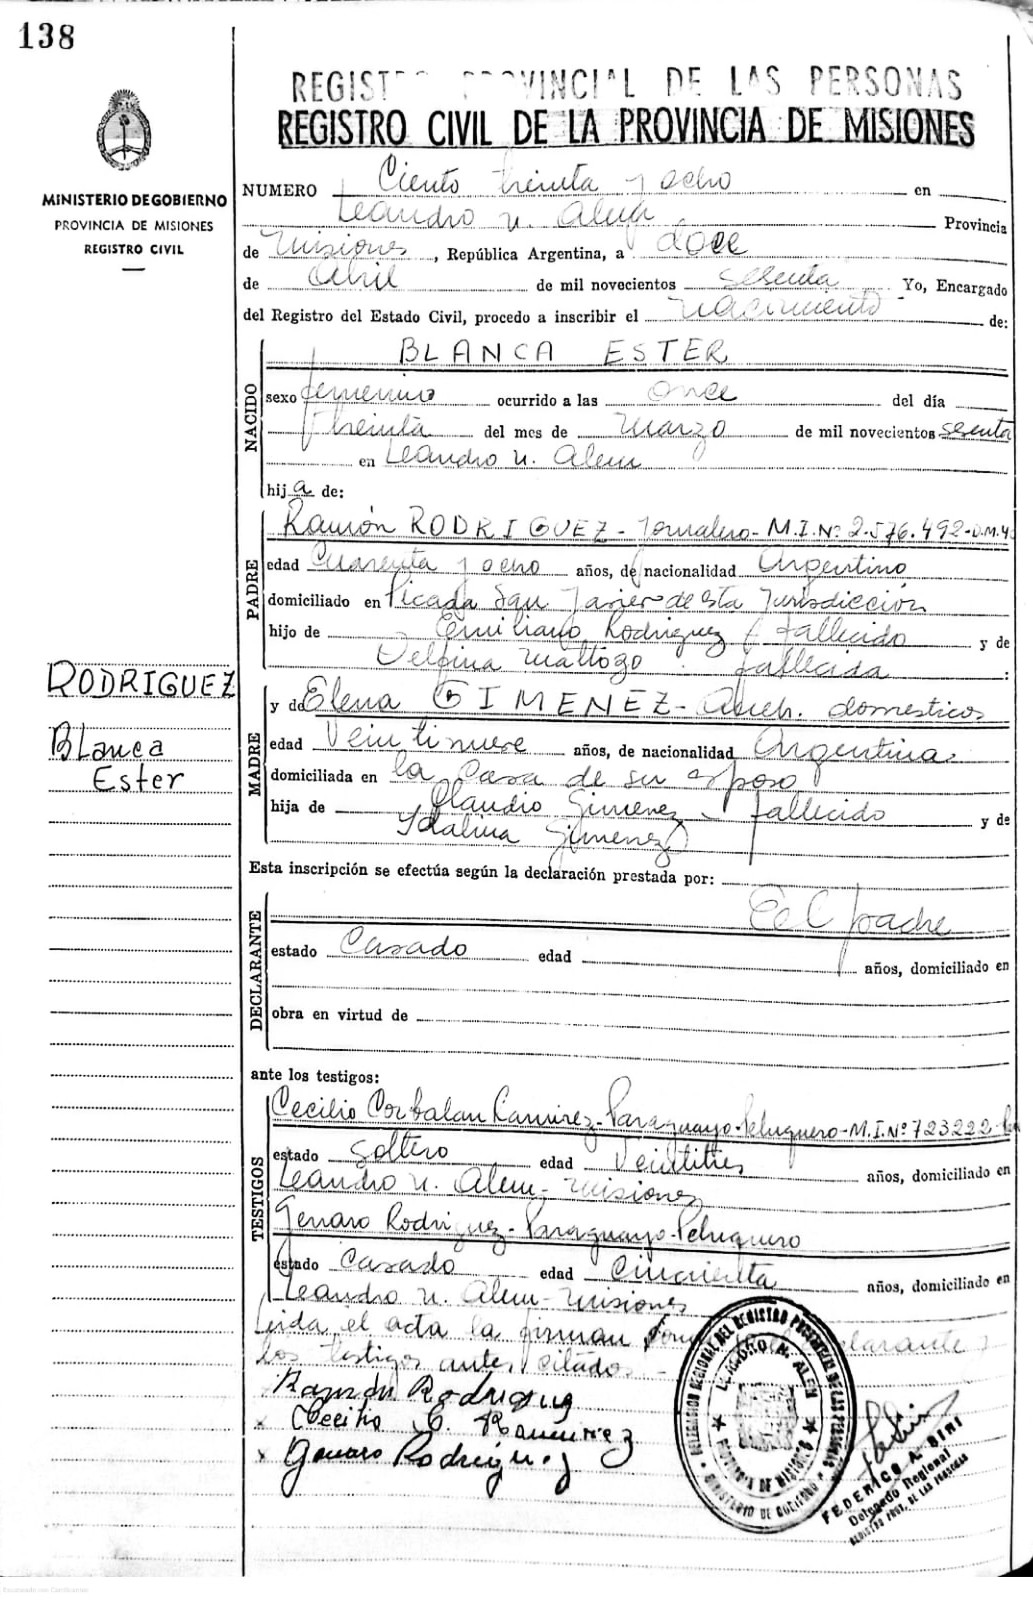 138
REGIST VINCIAL DE LAS PERSONAS
REGISTRO CIVIL DE LA PROVINCIA DE MISIONES
MINISTERIO DE GOBIERNO
PROVINCIA DE MISIONES
REGISTRO CIVIL
NUMERO Ciento treinta y ocho en
Leandro N. Alem Provincia
de Misiones, República Argentina, a doce
de Abril de mil novecientos sesenta Yo, Encargado
del Registro del Estado Civil, procedo a inscribir el nacimiento de:
NACIDO
BLANCA ESTER
sexo femenino ocurrido a las once del día
treinta del mes de Marzo de mil novecientos sesenta
en Leandro N. Alem
hija de:
PADRE
Ramón RODRIGUEZ - Jornalero - M.I.Nº 2.576.492 - D.M.4
edad Cuarenta y ocho años, de nacionalidad Argentino
domiciliado en Picada San Javier de esta Jurisdicción
hijo de Emiliano Rodriguez fallecido y de
Delfina Maltozo fallecida :
RODRIGUEZ
Blanca
Ester
MADRE
y de Elena GIMENEZ - Queh. domesticos
edad Veintinueve años, de nacionalidad Argentina
domiciliada en la Casa de su esposo
hija de Claudio Gimenez fallecido y de
Idalina Gimenez
Esta inscripción se efectúa según la declaración prestada por:
DECLARANTE
El padre
estado Casado edad años, domiciliado en
obra en virtud de
ante los testigos:
TESTIGOS
Cecilio Corbalan Ramirez - Paraguayo - Peluquero - M.I.Nº 723222
estado Soltero edad Veintitres años, domiciliado en
Leandro N. Alem - Misiones
Genaro Rodriguez - Paraguayo - Peluquero
estado Casado edad Cincuenta años, domiciliado en
Leandro N. Alem - Misiones
Leida el acta la firman declarante y
los testigos antes citados -
Ramón Rodriguez
x Cecilio C. Ramirez
x Genaro Rodriguez
DELEGACION REGIONAL DEL REGISTRO PROVINCIAL DE LAS PERSONAS
LEANDRO N. ALEM
PROVINCIA DE MISIONES
MINISTERIO DE GOBIERNO
FEDERICO A. BIRI
Delegado Regional
REGISTRO PROV. DE LAS PERSONAS
Escaneado con CamScanner